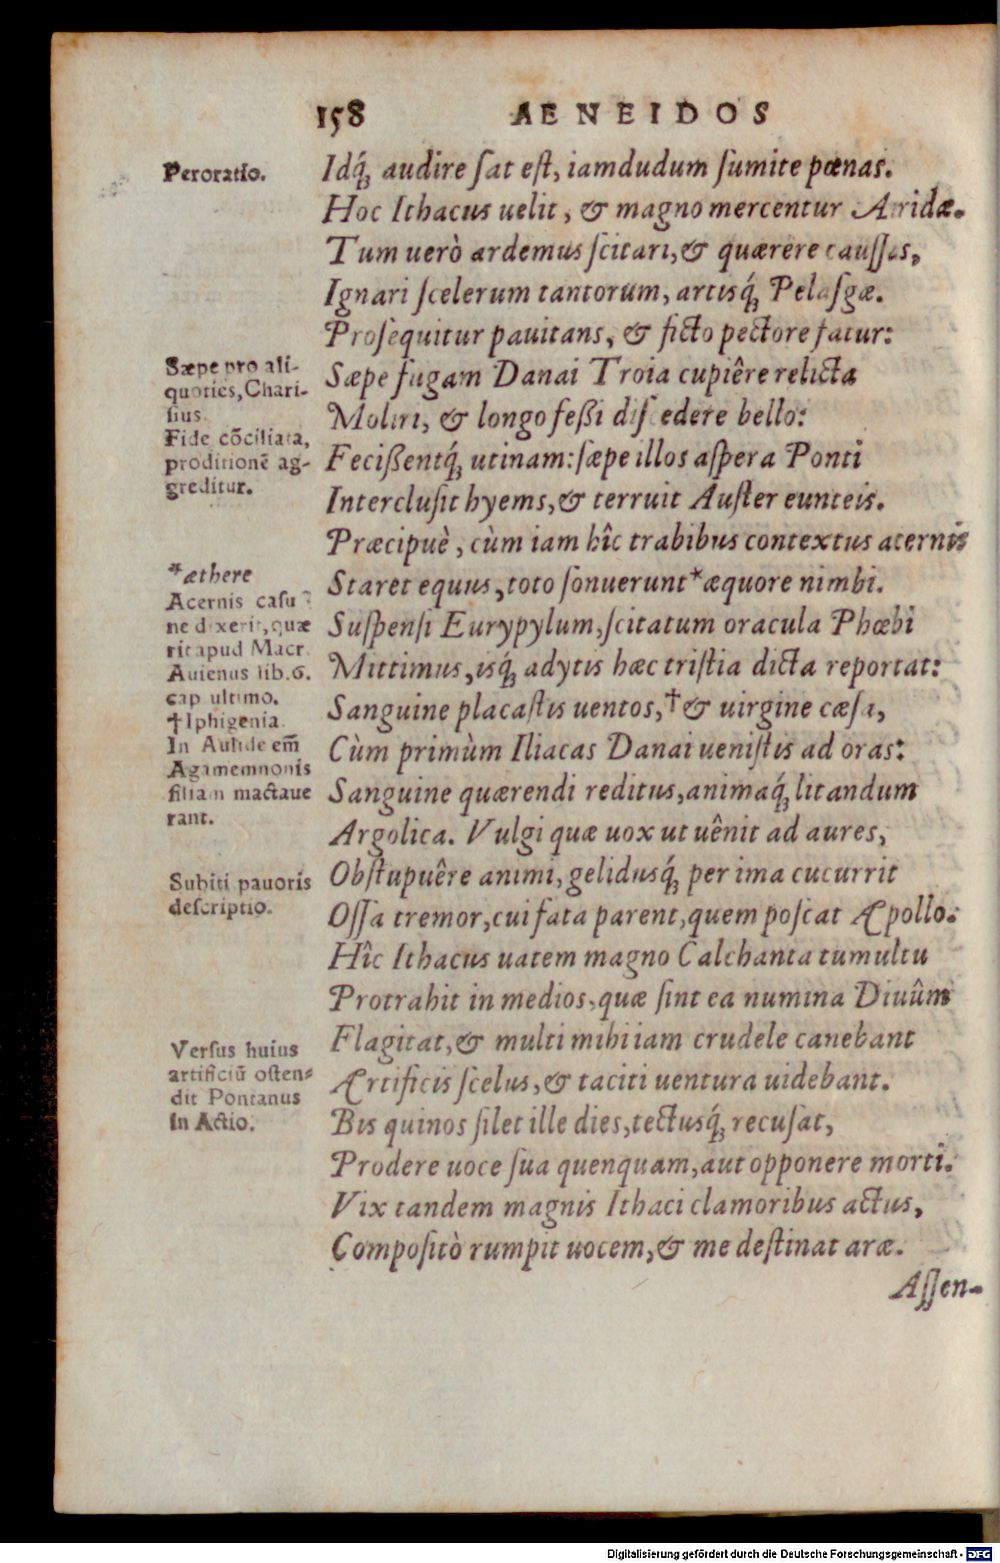 158 AENEIDOS
Peroratio.
Idq́; audire sat est, iamdudum sumite pœnas.
Hoc Ithacus uelit, & magno mercentur Atridæ.
Tum uerò ardemus scitari, & quærere caussas,
Ignari scelerum tantorum, artisq́; Pelasgæ.
Prosequitur pauitans, & ficto pectore fatur:
Sæpe pro ali-
quoties, Chari-
sius.
Fide cõciliata,
proditionẽ ag-
greditur.
Sæpe fugam Danai Troia cupiêre relicta
Moliri, & longo feßi discedere bello:
Fecißentq́; utinam: sæpe illos aspera Ponti
Interclusit hyems, & terruit Auster eunteis.
Præcipuè, cùm iam hîc trabibus contextus acernis
*æthere
Acernis casu
ne dixerit, quæ
rit apud Macr.
Auienus lib. 6.
cap ultimo.
†Iphigenia
In Aulide em̃
Agamemnonis
filiam mactaue
rant.
Staret equus, toto sonuerunt *æquore nimbi.
Suspensi Eurypylum, scitatum oracula Phœbi
Mittimus, isq́; adytis hæc tristia dicta reportat:
Sanguine placastis uentos, †& uirgine cæsa,
Cùm primùm Iliacas Danai uenistis ad oras:
Sanguine quærendi reditus, animaq́; litandum
Argolica. Vulgi quæ uox ut uênit ad aures,
Subiti pauoris
descriptio.
Obstupuêre animi, gelidusq́; per ima cucurrit
Ossa tremor, cui fata parent, quem poscat Apollo.
Hîc Ithacus uatem magno Calchanta tumultu
Protrahit in medios, quæ sint ea numina Diuûm
Flagitat, & multi mihi iam crudele canebant
Versus huius
artificiũ osten-
dit Pontanus
in Actio.
Artificis scelus, & taciti uentura uidebant.
Bis quinos silet ille dies, tectusq́; recusat,
Prodere uoce sua quenquam, aut opponere morti.
Vix tandem magnis Ithaci clamoribus actus,
Compositò rumpit uocem, & me destinat aræ.
Assen-
Digitalisierung gefördert durch die Deutsche Forschungsgemeinschaft - DFG